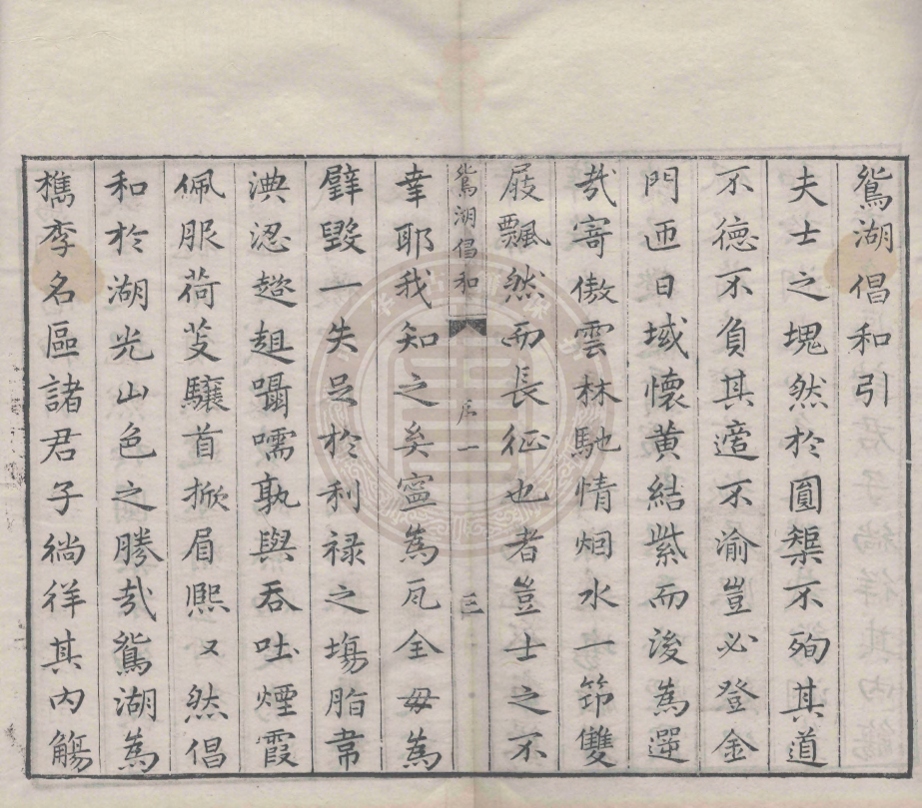 鴛湖倡和引
夫士之塊然於圓槼不殉其道
不德不負其適不渝豈必登金
門迊日域懷黄結紫而後為遲
㢤寄傲雲林馳情烟水一笻雙
屐飄然而長征也者豈士之不
鴛湖倡和 序一 三
幸耶我知之矣寧為瓦全毋為
璧毀一失足於利祿之塲脂韋
淟涊趑趄囁嚅孰與吞吐煙霞
佩服荷芰驤首掀眉熙又然倡
和於湖光山色之勝㢤鴛湖為
檇李名區諸君子徜徉其內觴